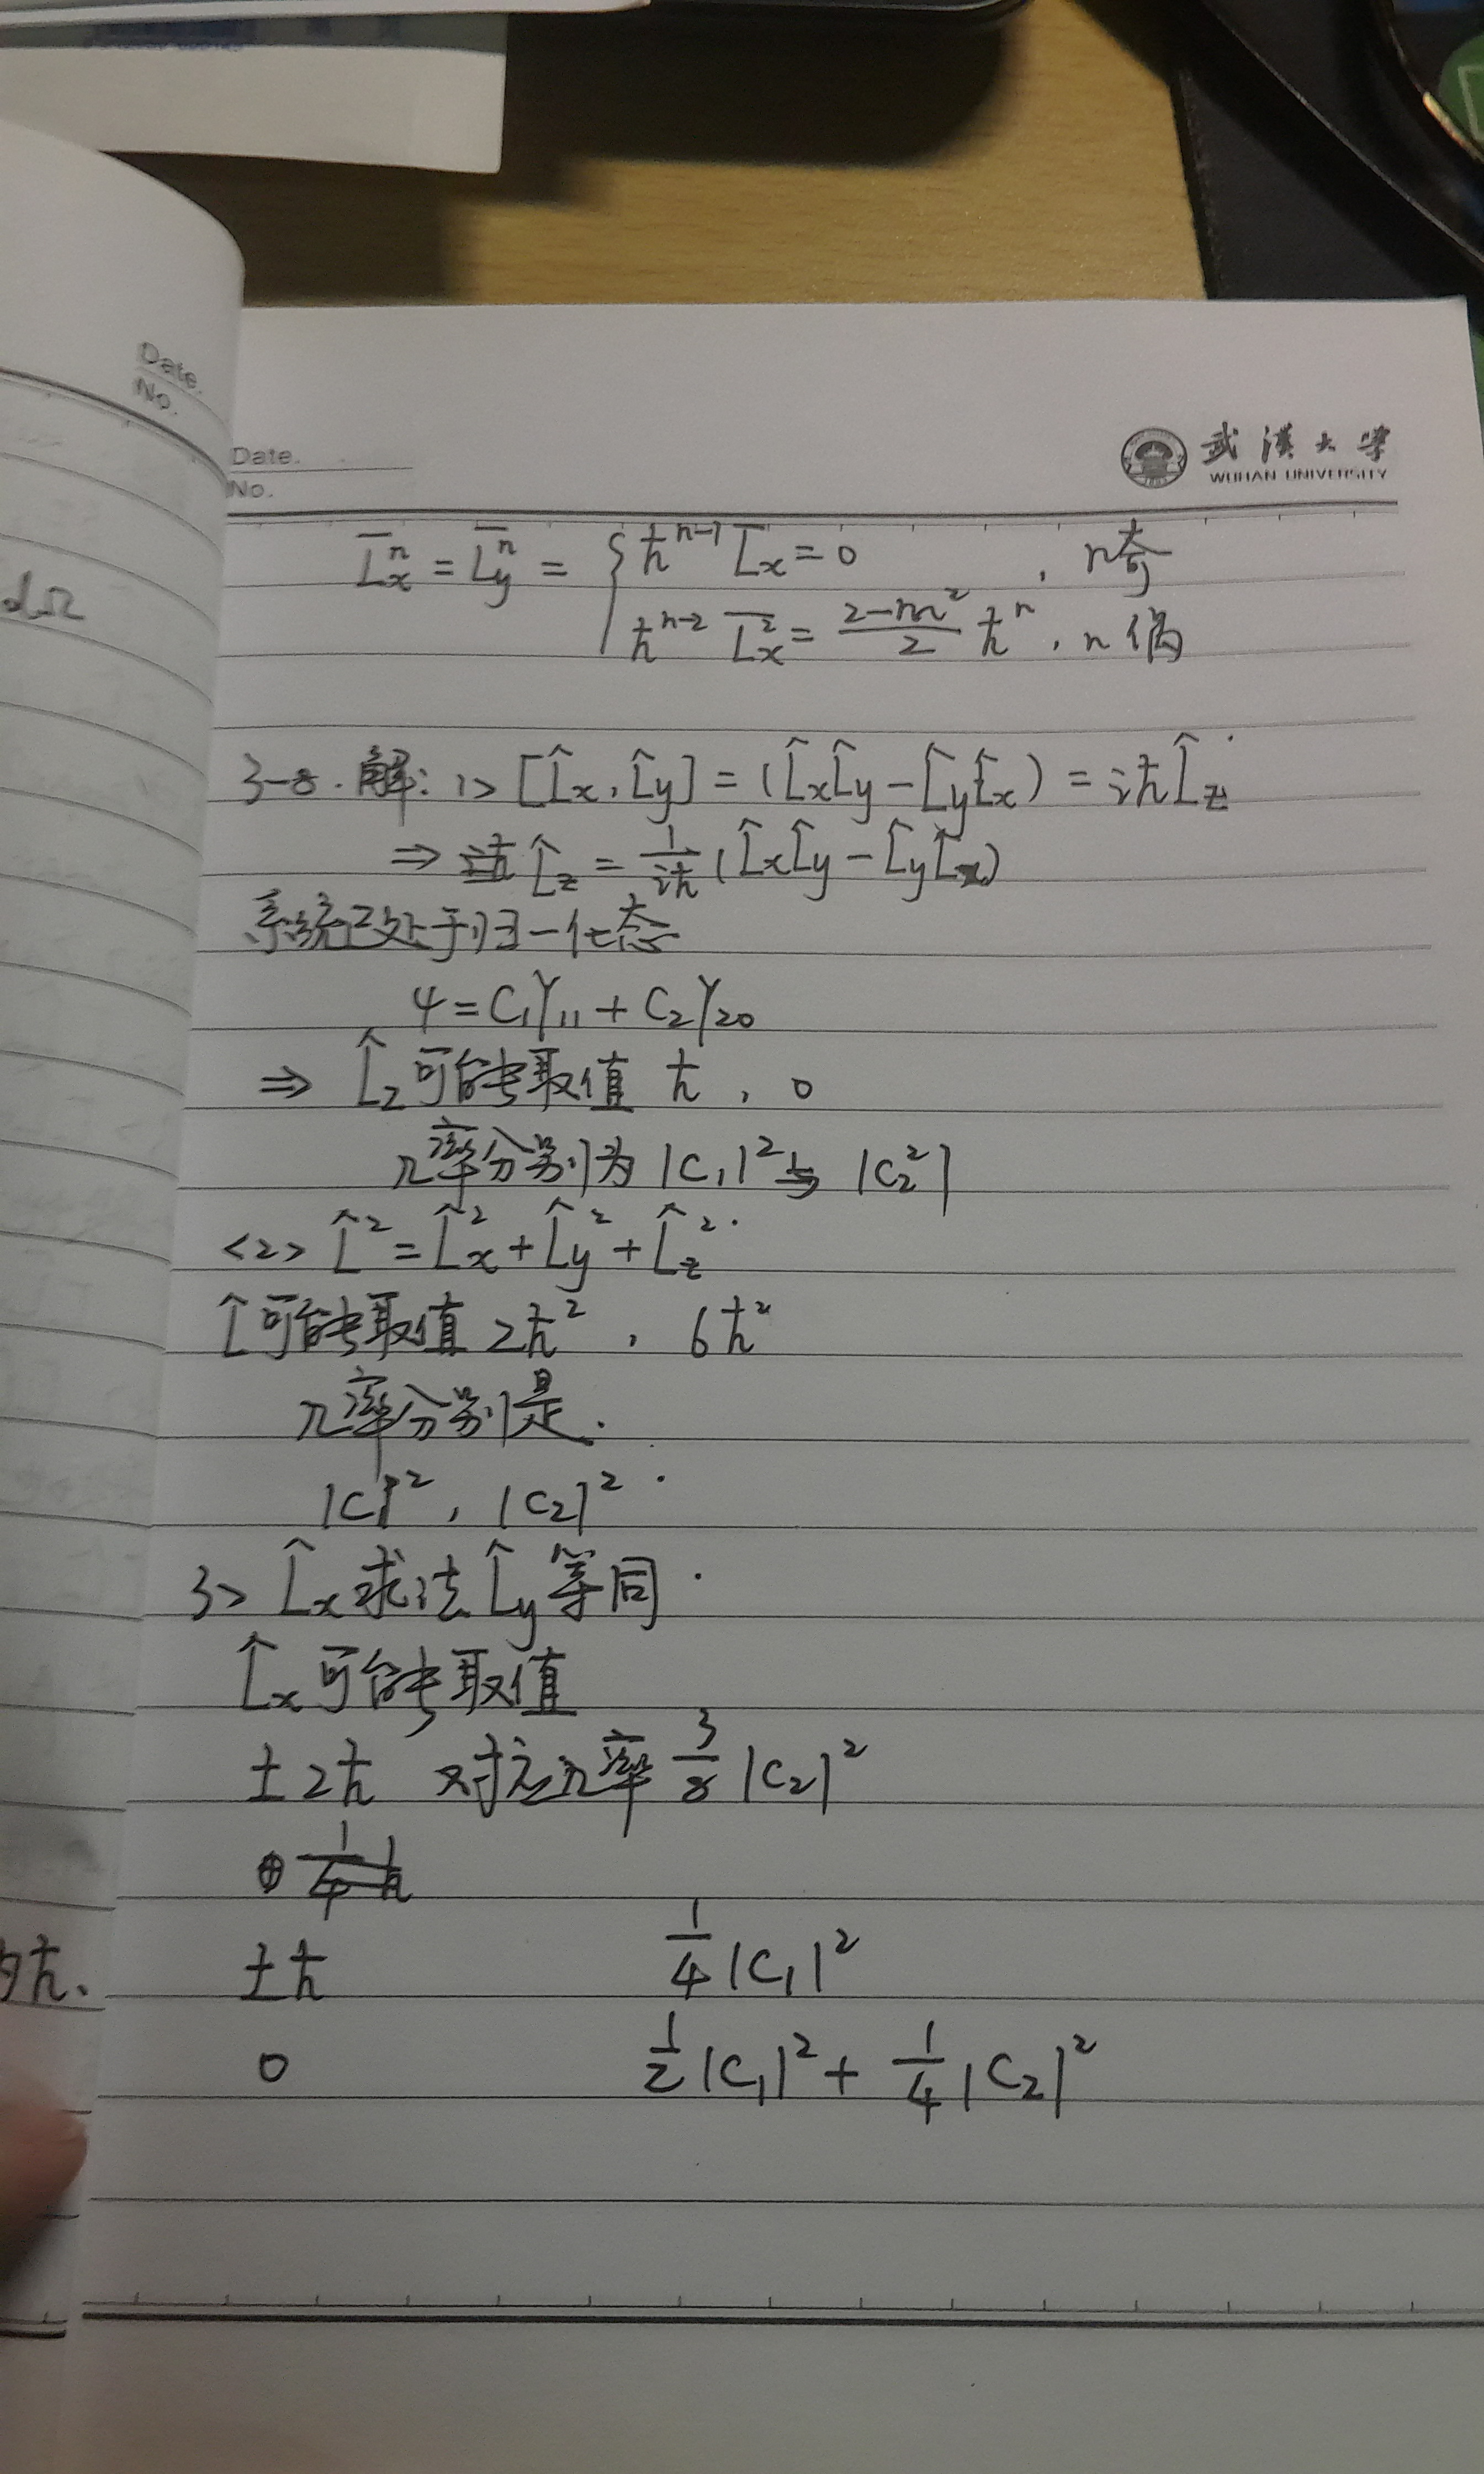 Date.
No.
dΩ
的ħ.
Date.
No.
武汉大学
WUHAN UNIVERSITY
L̄ₓⁿ = L̄ᵧⁿ = { ħⁿ⁻¹ L̄ₓ = 0 , n奇
ħⁿ⁻² L̄ₓ² = (2-m²)/2 ħⁿ , n偶
3-8. 解: 1> [L̂x, L̂y] = (L̂xL̂y - L̂yL̂x) = iħL̂z
⇒ L̂z = 1/iħ (L̂xL̂y - L̂yL̂x)
系统已处于归一化态
ψ = C₁Y₁₁ + C₂Y₂₀
⇒ L̂z可能取值 ħ , 0
几率分别为 |C₁|² 与 |C₂²|
<2> L̂² = L̂x² + L̂y² + L̂z²
L̂可能取值 2ħ² , 6ħ²
几率分别是.
|C₁|² , |C₂|²
3> L̂x求法L̂y等同.
L̂x可能取值
±2ħ 对应几率 3/8 |C₂|²
±ħ 1/4 |C₁|²
0 1/2 |C₁|² + 1/4 |C₂|²